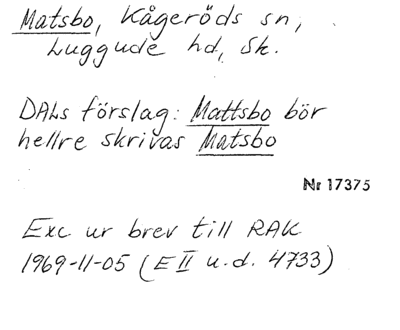 Matsbo, Kågeröds sn,
Luggude hd, Sk.
DALs förslag: Mattsbo bör
hellre skrivas Matsbo
Nr 17375
Exc ur brev till RAK
1969-11-05 (E II u.d. 4733)